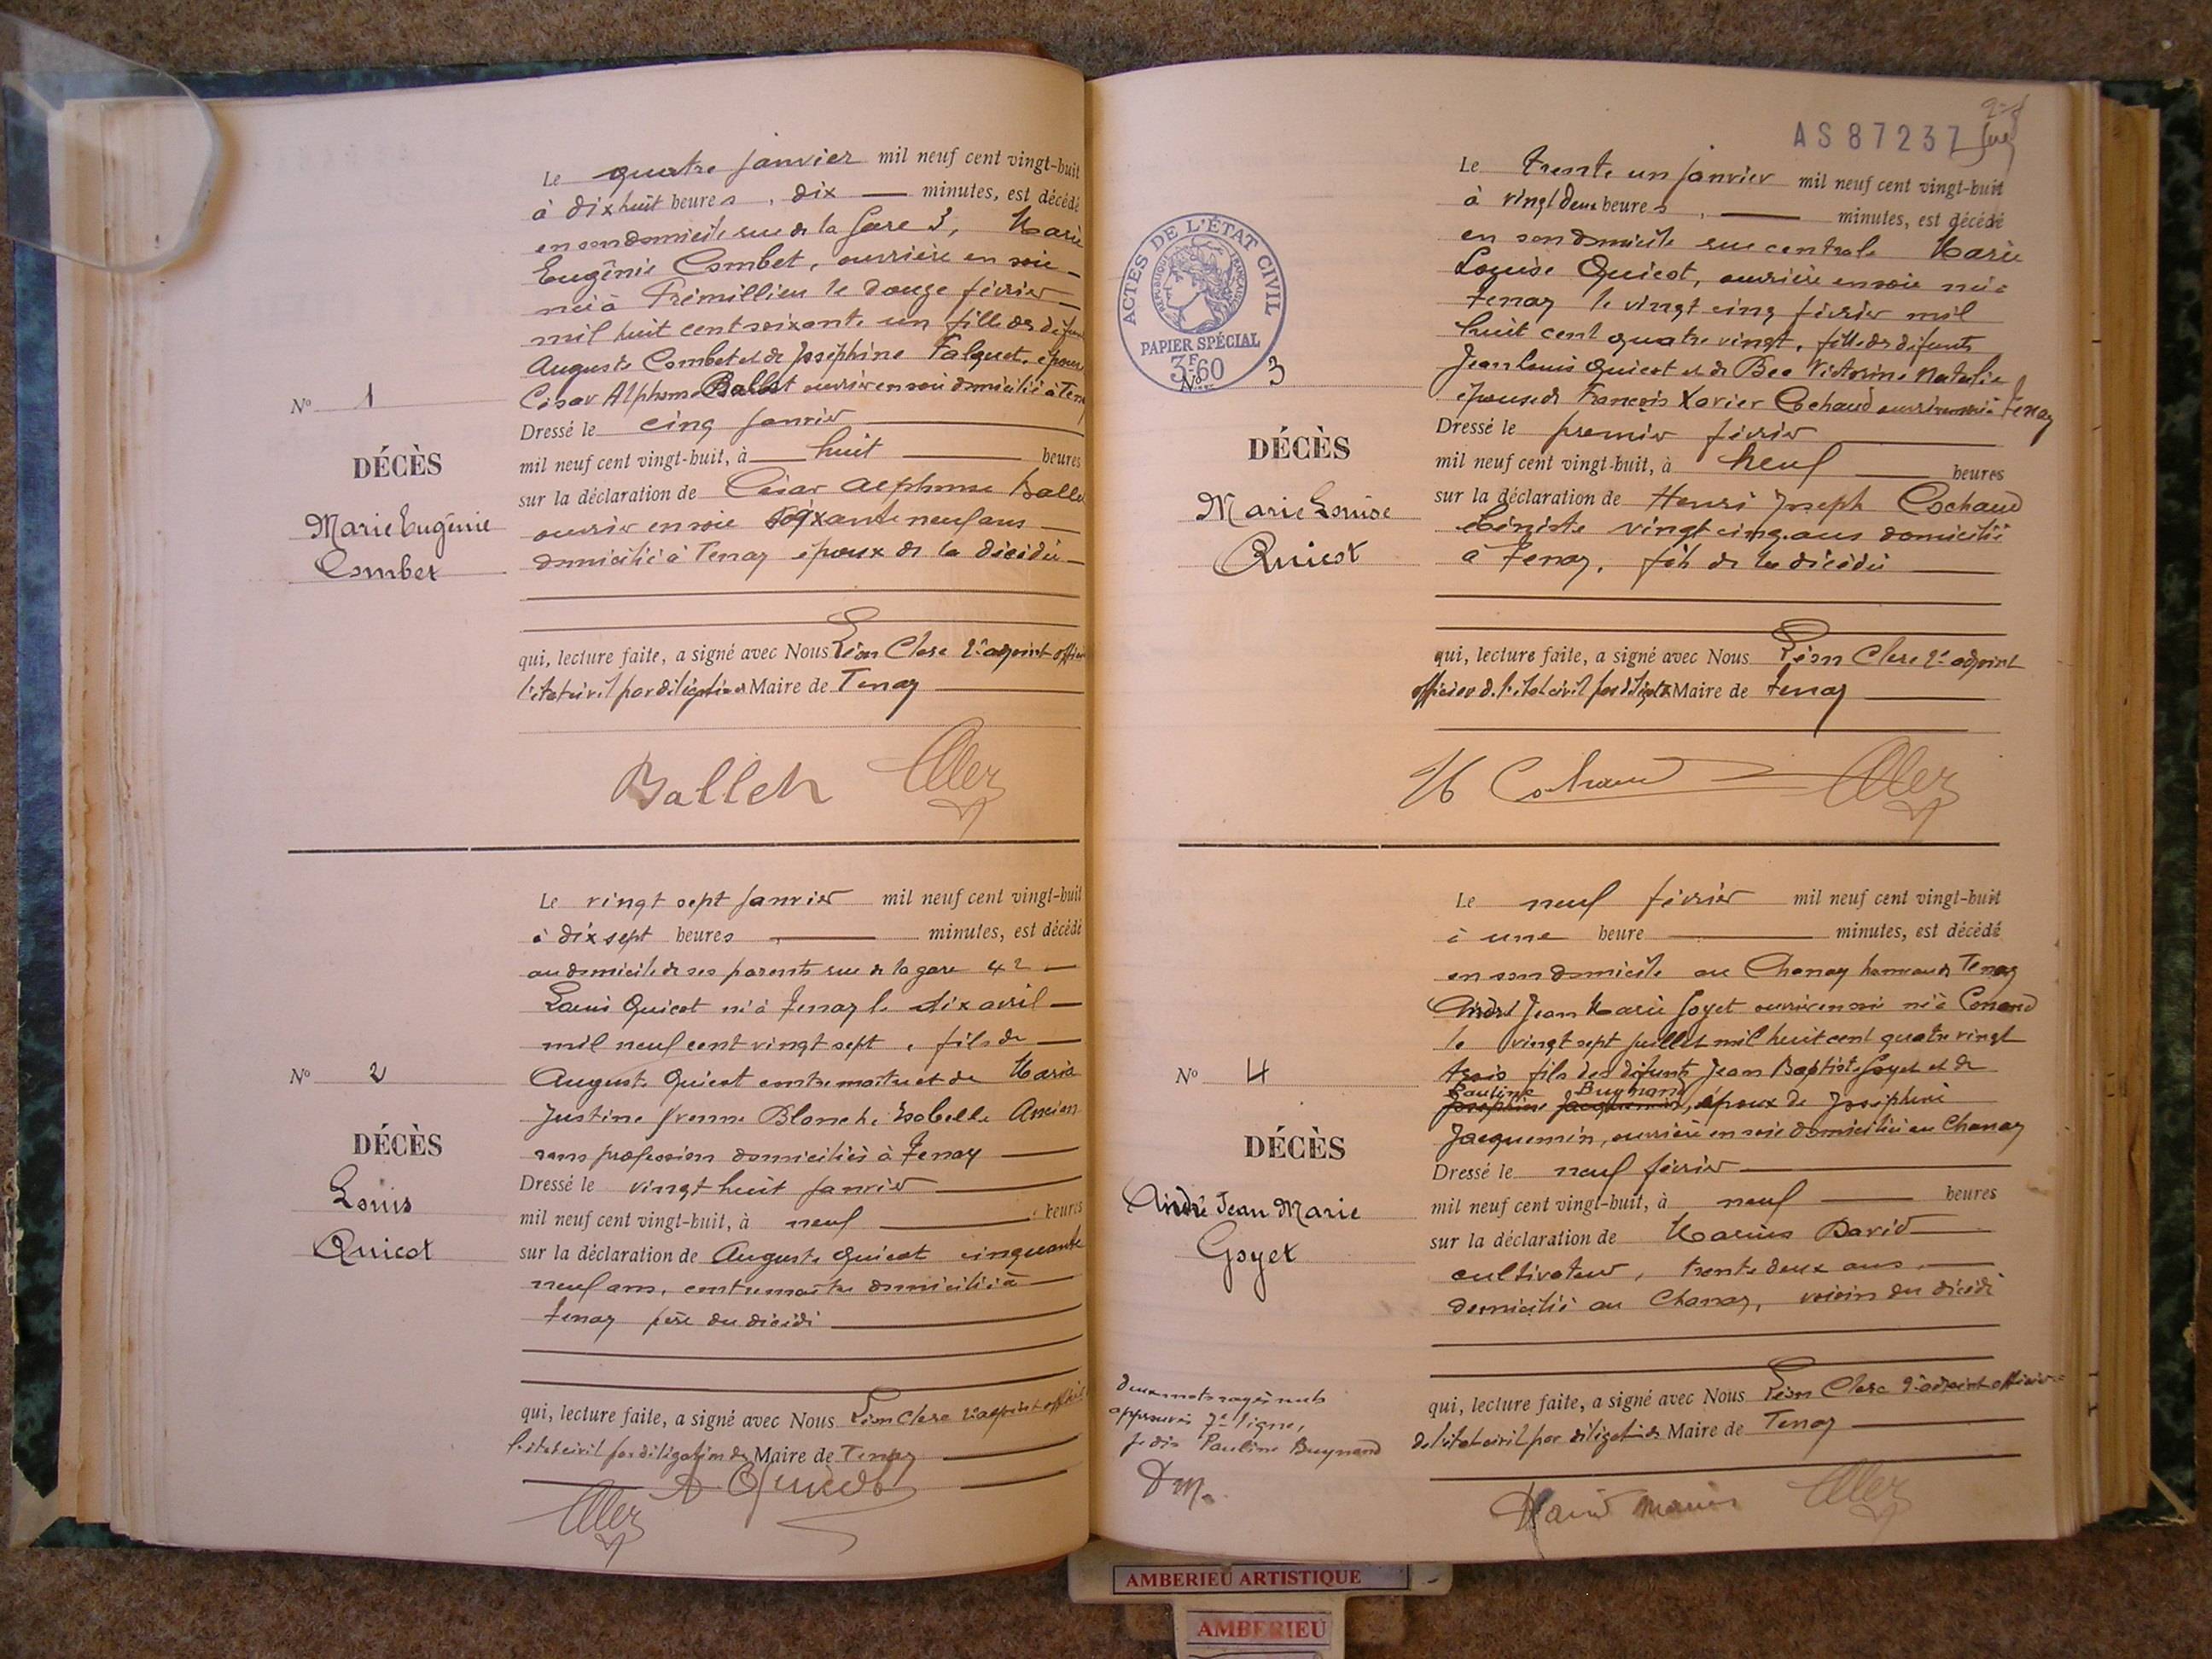 Le quatre janvier mil neuf cent vingt-huit
à dix huit heures, dix — minutes, est décédé
en son domicile rue de la Gare 3, Marie
Eugénie Combet, ouvrière en soie —
née à Prémillieu le douze février —
mil huit cent soixante un fille de défunts
Auguste Combet et de Joséphine Falquet, épouse
César Alphonse Ballet ouvrier en soie domicilié à Tenay
Nº 1
DÉCÈS
Marie Eugénie
Combet
Dressé le cinq janvier
mil neuf cent vingt-huit, à huit heures
sur la déclaration de César Alphonse Ballet
ouvrier en soie soixante neuf ans —
domicilié à Tenay époux de la décédée —
qui, lecture faite, a signé avec Nous Léon Clerc 2e adjoint officier
l'état civil par délégation Maire de Tenay
Ballet
Le vingt sept janvier mil neuf cent vingt-huit
à dix sept heures, — minutes, est décédé
au domicile de ses parents rue de la gare 42 —
Louis Quicot né à Tenay le dix avril —
mil neuf cent vingt sept, fils de —
Auguste Quicot contremaître et de Maria
Justine Yvonne Blanche Isabelle Ancian
sans profession domiciliés à Tenay
Nº 2
DÉCÈS
Louis
Quicot
Dressé le vingt huit janvier
mil neuf cent vingt-huit, à neuf heures
sur la déclaration de Auguste Quicot cinquante
neuf ans, contremaître domicilié à —
Tenay père du décédé
qui, lecture faite, a signé avec Nous Léon Clerc 2e adjoint officier
l'état civil par délégation de Maire de Tenay
A Quicot
AS 87237
Le trente un janvier mil neuf cent vingt-huit
à vingt deux heures, — minutes, est décédé
en son domicile rue centrale Marie
Louise Quicot, ouvrière en soie née à
Tenay le vingt cinq février mil
huit cent quatre vingt, fille de défunts
Jean Louis Quicot et de Beo Victorine Natalie
épouse de François Xavier Cochaud ouvrier en soie à Tenay
ACTES DE L'ÉTAT CIVIL
RÉPUBLIQUE FRANÇAISE
PAPIER SPÉCIAL
3F60
Nº 3
DÉCÈS
Marie Louise
Quicot
Dressé le premier février
mil neuf cent vingt-huit, à neuf heures
sur la déclaration de Henri Joseph Cochaud
ébéniste vingt cinq ans domicilié
à Tenay, fils de la décédée
qui, lecture faite, a signé avec Nous Léon Clerc 2e adjoint
officier de l'état civil par délégation Maire de Tenay
H Cochaud
Le neuf février mil neuf cent vingt-huit
à une heure — minutes, est décédé
en son domicile au Chanay hameau de Tenay
André Jean Marie Goyet ouvrier en soie né à Conand
le vingt sept juillet mil huit cent quatre vingt
trois fils des défunts Jean Baptiste Goyet et de
Pauline Buynand
Joséphine Jacquemin, époux de Joséphine
Jacquemin, ouvrière en soie domiciliée au Chanay
Nº 4
DÉCÈS
André Jean Marie
Goyet
Dressé le neuf février
mil neuf cent vingt-huit, à neuf heures
sur la déclaration de Marius David
cultivateur, trente deux ans, —
domicilié au Chanay, voisin du décédé
qui, lecture faite, a signé avec Nous Léon Clerc 2e adjoint officier
de l'état civil par délégation de Maire de Tenay
deux mots rayés nuls
approuvés 7e ligne,
je dis Pauline Buynand
DM.
David Marius
AMBERIEU ARTISTIQUE
AMBERIEU